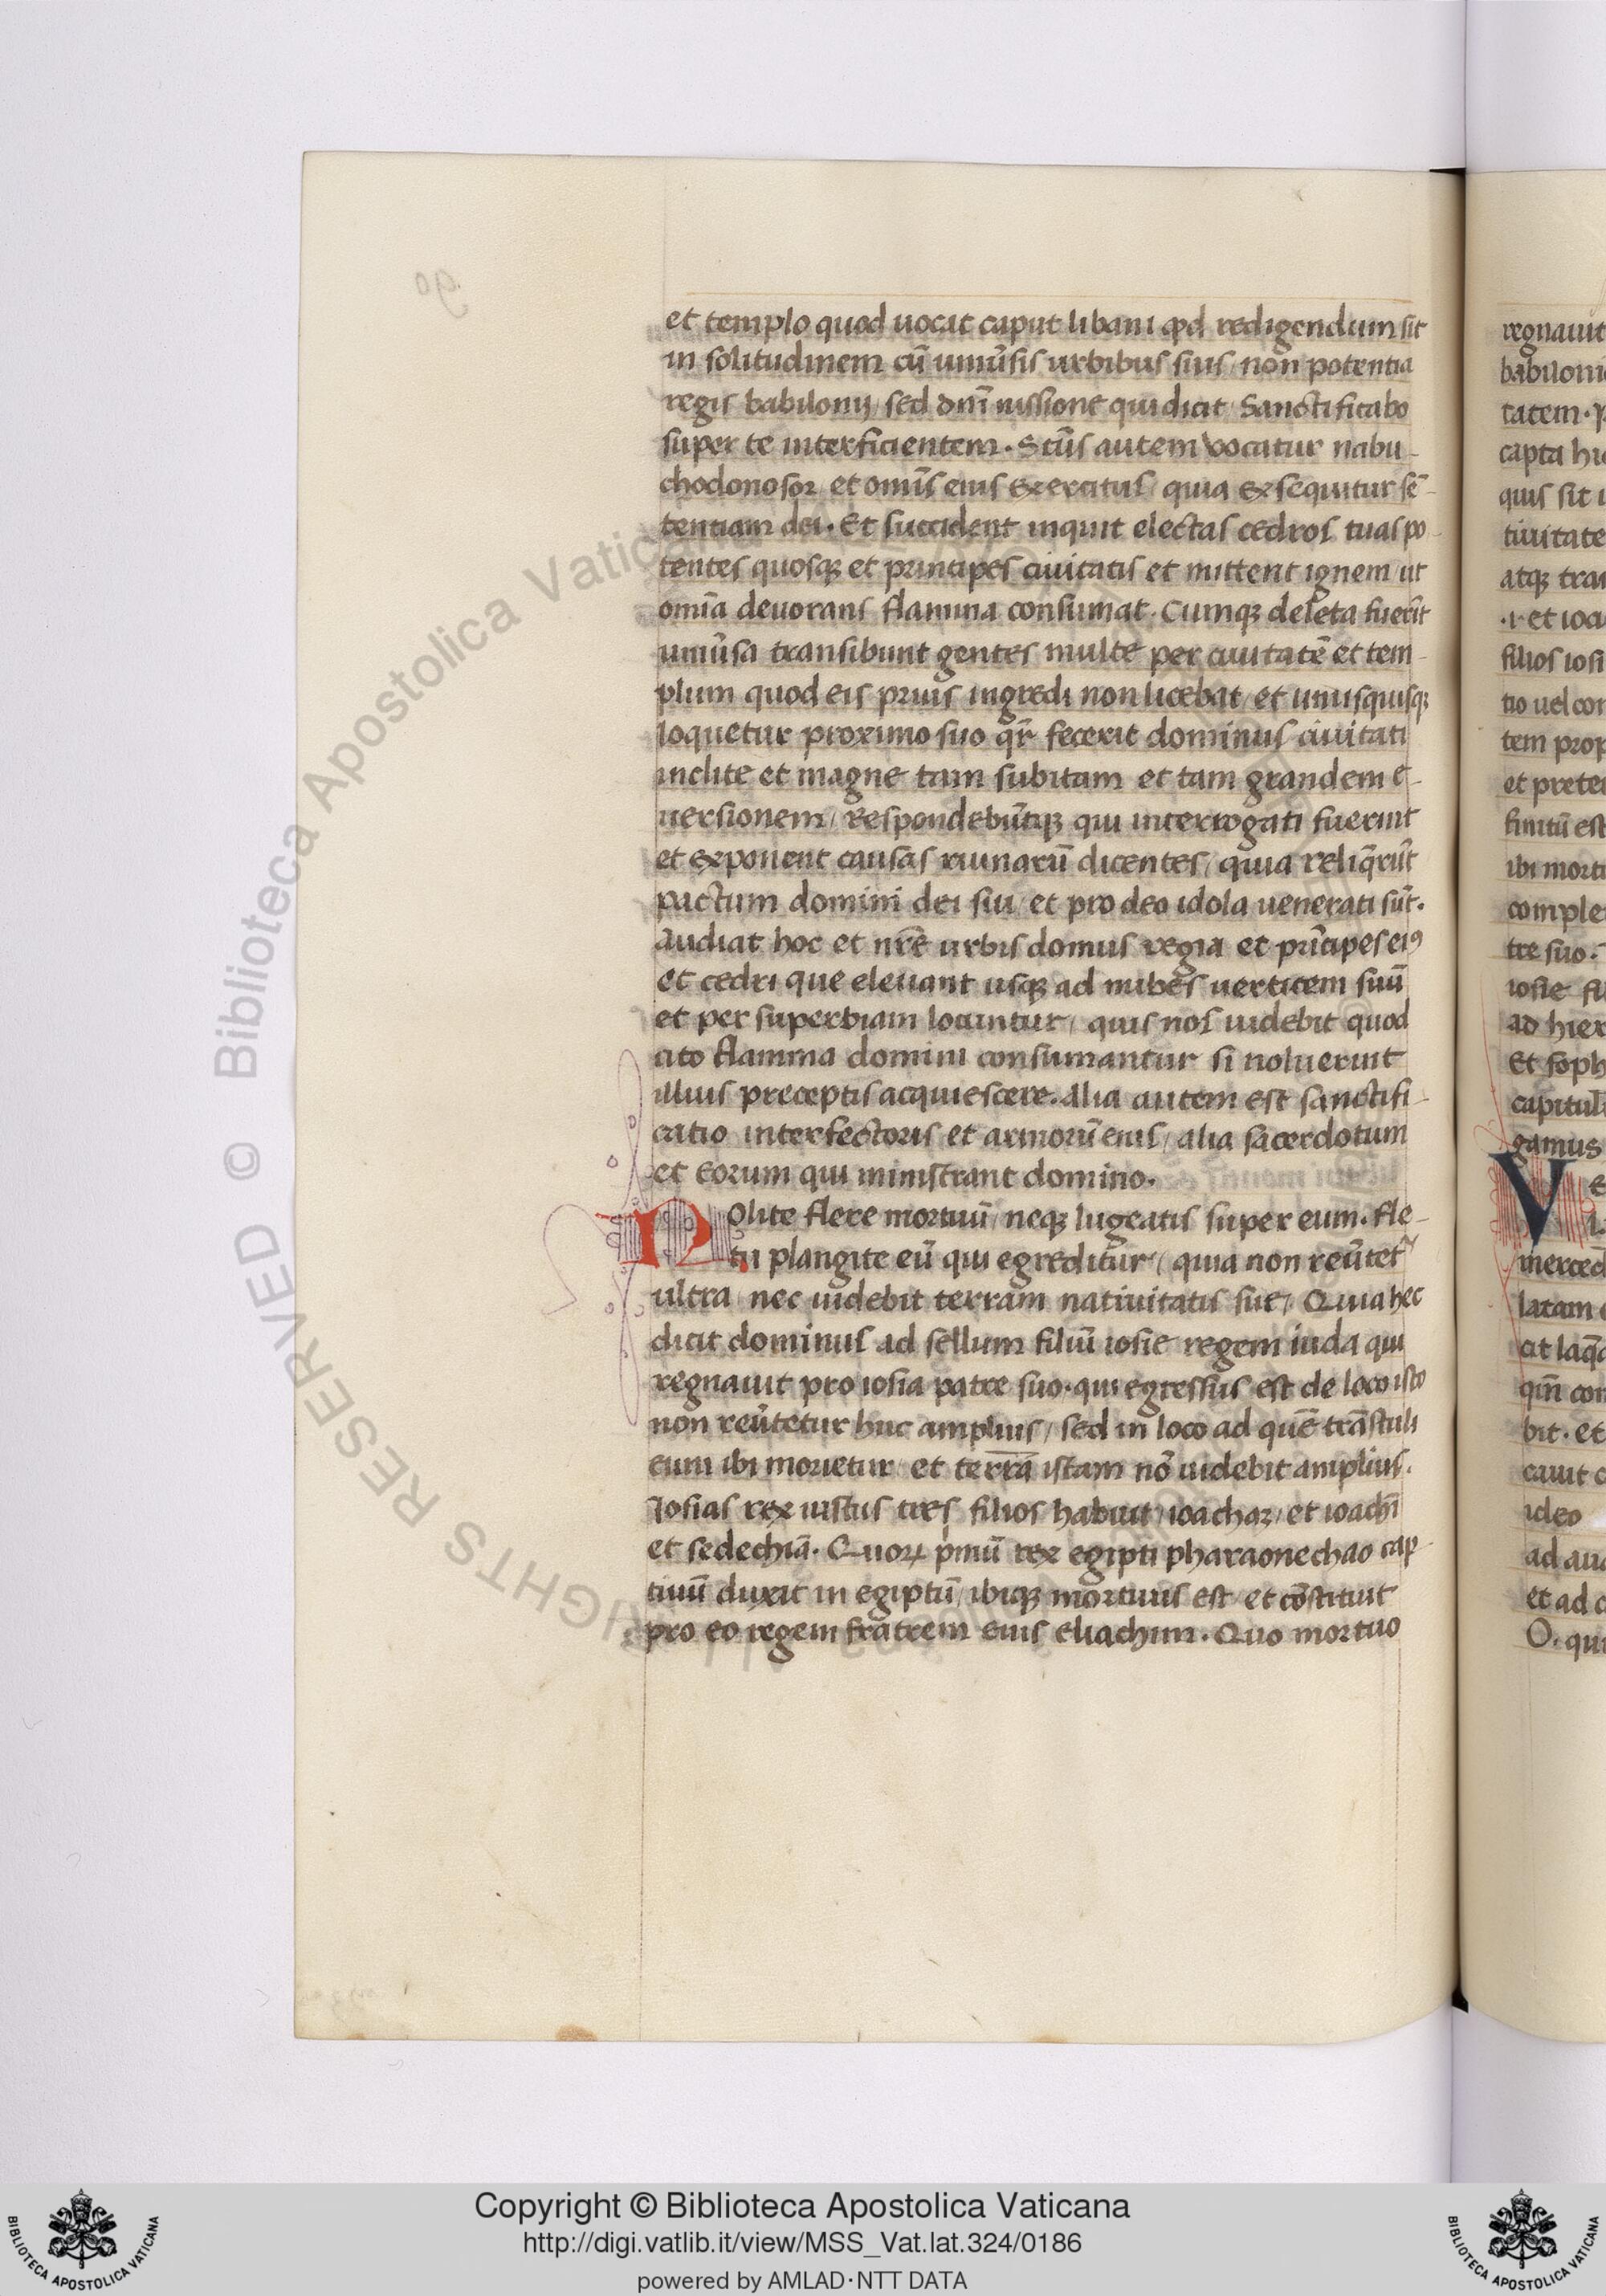 et templo quod uocat caput libani qd redigendum sit
in solitudinem cū uniūsis urbibus suis / non potentia
regis babilonij / sed dnī iussione qui dicit / Sanctificabo
super te interficientem. Scūs autem vocatur nabu-
chodonosor et omīs eius exercitus / quia exsequitur sē-
tentiam dei. Et succident inquit electas cedros tuas po-
tentes quosqꝫ et principes ciuitatis et mittent ignem / ut
omīa deuorans flamma consumat. Cumqꝫ deleta fuerīt
uniūsa transibunt gentes multe per ciuitatē et tem-
plum quod eis prius ingredi non licebat / et unusquisqꝫ
loquetur proximo suo qr̄ fecerit dominus ciuitati
inclite et magne tam subitam et tam grandem e-
uersionem / Respondebūtqꝫ qui interrogati fuerint
et exponent causas ruinarū dicentes / quia reliq̄rūt
pactum domini dei sui / et pro deo idola uenerati sūt.
audiat hoc et nr̄e urbis domus regia et prīcipes eiꝯ
et cedri que eleuant usqꝫ ad nubes uerticem suū
et per superbiam locuntur / quis nos uidebit quod
cito flamma domini consumantur si noluerint
illius preceptis acquiescere. Alia autem est sanctifi-
catio interfectoris et armorū eius / alia sacerdotum
et eorum qui ministrant domino.
Nolite flere mortuū / neqꝫ lugeatis super eum. fle-
tu plangite eū qui egreditur / quia non reūtet᷑
ultra / nec uidebit terram natiuitatis sue / Quia hec
dicit dominus ad sellum filiū iosie regem iuda qui
regnauit pro iosia patre suo. qui egressus est de loco isto
non reūtetur huc amplius / sed in loco ad quē trāstuli
eum ibi morietur / et terrā istam nō uidebit amplius.
Iosias rex iustus tres filios habuit / ioachaz / et ioachī
et sedechiā. Quoꝝ pīmū rex egipti pharaonechao cap-
tiuū duxit in egiptū / ibiqꝫ mortuus est / et cōstituit
pro eo regem fratrem eius eliachim. Quo mortuo
regnauit
tatem. p
quis sit i
tiuitate
atqꝫ tra
.i. et ioa
filios iosi
tio uel con
tem prop
et prete
finitū est
ibi mort
comple
tre suo.
iosie fi
ad hier
Et soph
capitul
gamus
V
merced
latam
bit. et
cauit c
ideo
et ad c
O. qui
Biblioteca Apostolica Vaticana
© Biblioteca Apostolica Vaticana ALL RIGHTS RESERVED
Copyright © Biblioteca Apostolica Vaticana
http://digi.vatlib.it/view/MSS_Vat.lat.324/0186
powered by AMLAD·NTT DATA
BIBLIOTECA APOSTOLICA VATICANA
BIBLIOTECA APOSTOLICA VATICANA